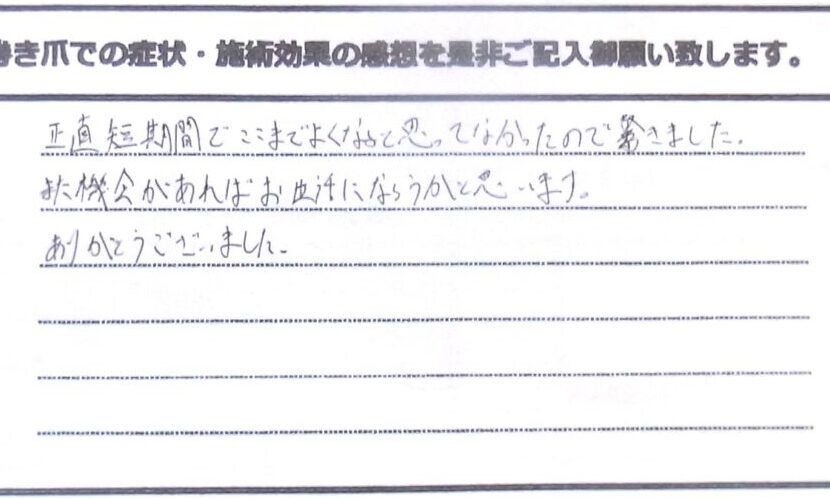 巻き爪での症状・施術効果の感想を是非ご記入御願い致します。
正直短期間でここまでよくなると思ってなかったので驚きました。
また機会があればお世話にならうかと思います。
ありがとうございました。